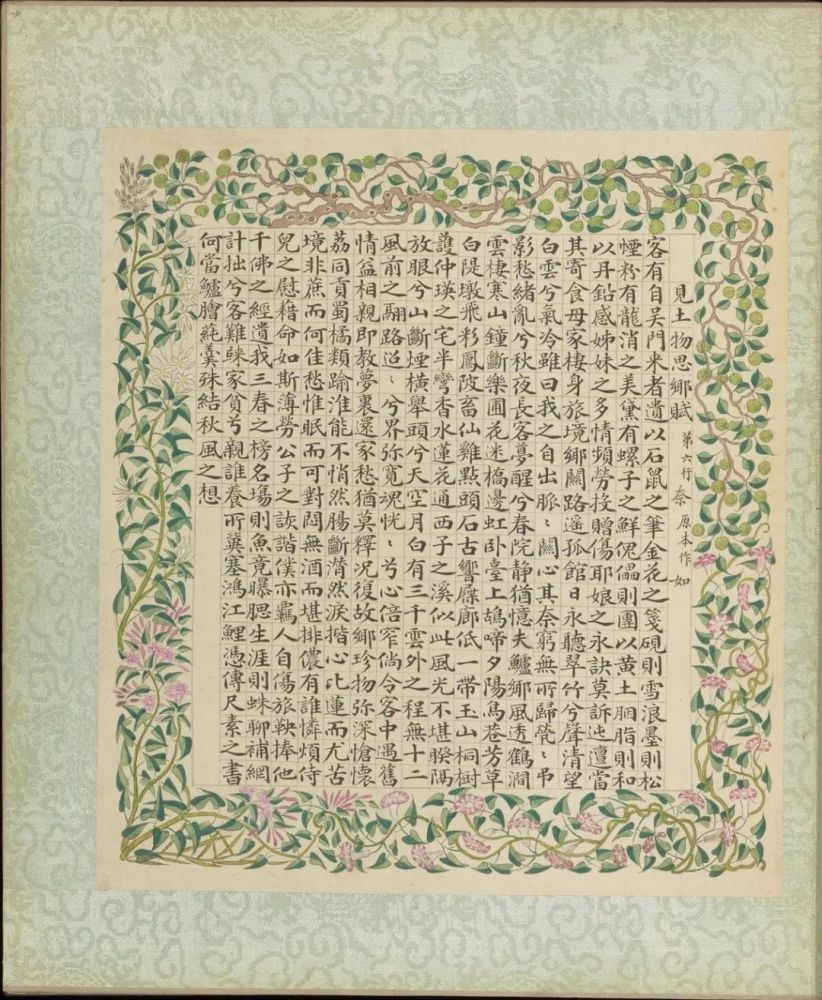 見土物思鄉賦 第六行奈原本作如
客有自吳門来者遺以石鼠之筆金花之箋硯則雪浪墨則松
煙粉有龍消之美黛有螺子之鮮傀儡則團以黄土胭脂則和
以丹鉛感姊妹之多情頻勞投贈傷耶娘之永訣莫訴迍邅當
其寄食母家棲身旅境鄉關路遥孤館日永聽翠竹兮聲清望
白雲兮氣冷雖曰我之自出脈、關心其奈窮無所歸煢、弔
影愁緒亂兮秋夜長客夢醒兮春院静猶憶夫鱸鄉風透鶴澗
雲棲寒山鐘斷樂圃花迷橋邊虹卧臺上鴣啼夕陽烏巷芳草
白隄墩飛彩鳳陂畜仙雞點頭石古響屧廊低一帶玉山桐樹
護仲瑛之宅半彎香水蓮花通西子之溪似此風光不堪睽隔
放眼兮山斷煙横舉頭兮天空月白有三千雲外之程無十二
風前之翮路迢、兮界弥寬魂恍、兮心倍窄倘令客中遇舊
情益相親即教夢裏還家愁猶莫釋况復故鄉珍物弥深愴懷
荔同貢蜀橘類踰淮能不悄然腸斷潸然淚揩心比蓮而尤苦
境非蔗而何佳愁惟眠而可對悶無酒而堪排儂有誰憐煩侍
兒之慰藉命如斯薄勞公子之詼諧僕亦羈人自傷旅鞅捧他
千佛之經遺我三春之榜名場則魚竟曝腮生涯則蛛聊補網
計拙兮客難歸家貧兮親誰養所冀塞鴻江鯉憑傳尺素之書
何當鱸膾蒓羹殊結秋風之想